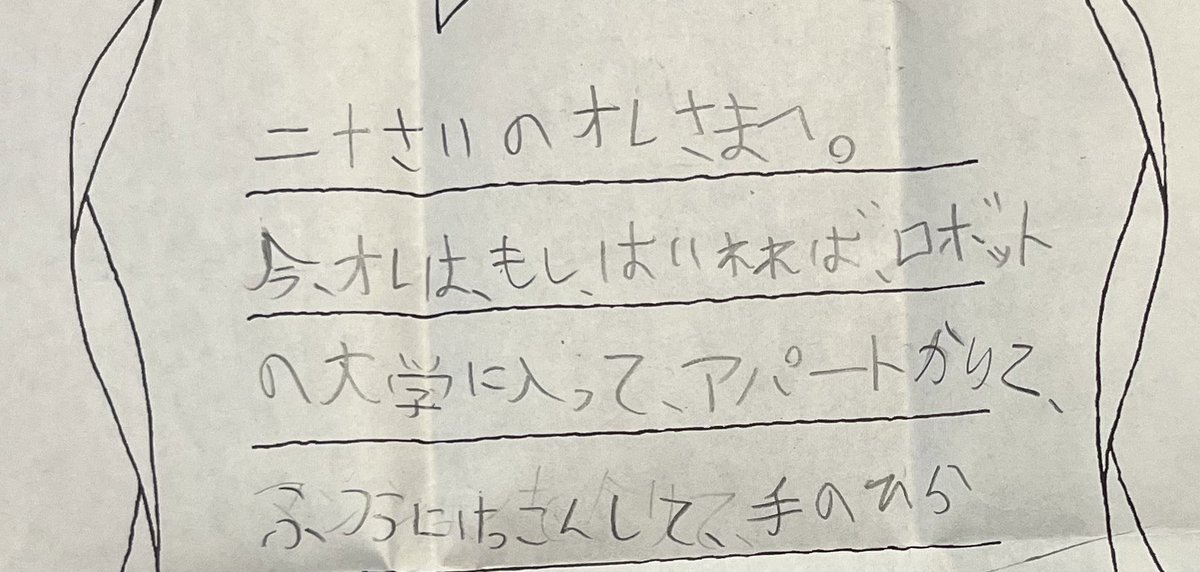 二十さいのオレさまへ。
今、オレは、もし、はいれれば、ロボット
の大学に入って、アパートかりて、
ふつうにけっこんして、手のひら